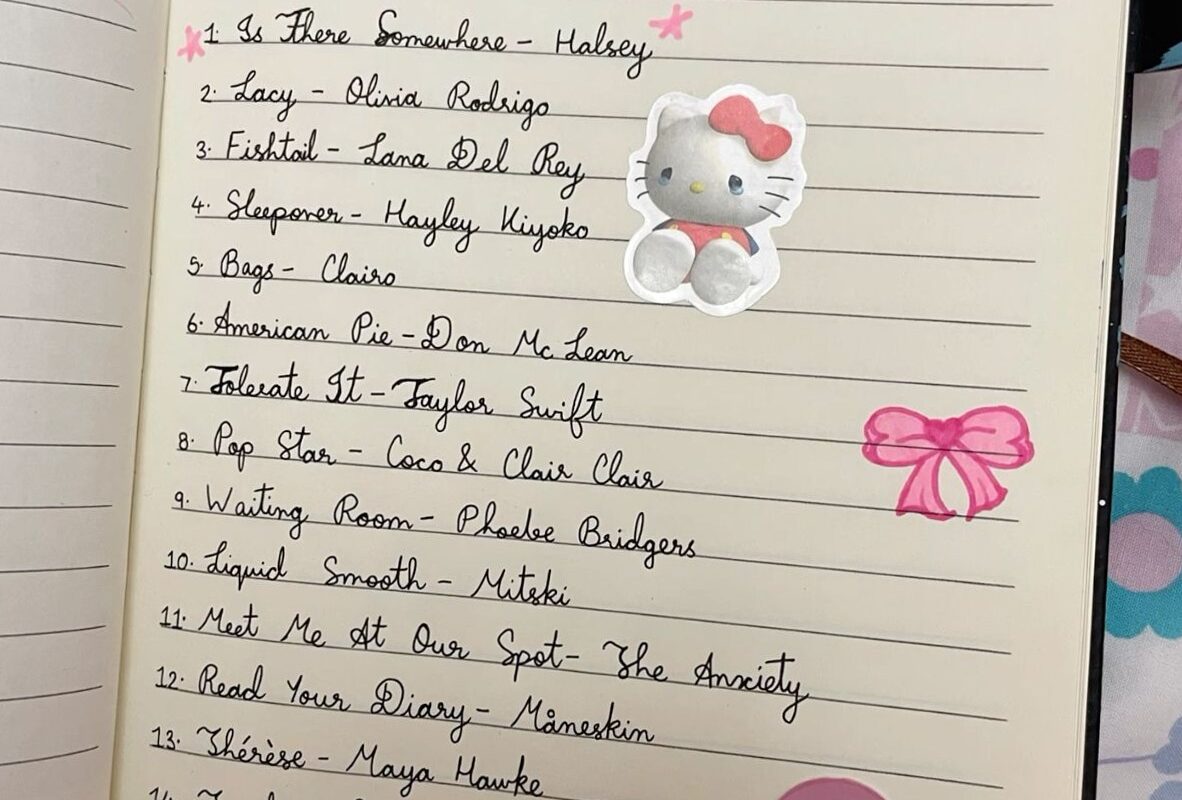 1. Is There Somewhere - Halsey
2. Lacy - Olivia Rodrigo
3. Fishtail - Lana Del Rey
4. Sleepover - Hayley Kiyoko
5. Bags - Clairo
6. American Pie - Don Mc Lean
7. Tolerate It - Taylor Swift
8. Pop Star - Coco & Clair Clair
9. Waiting Room - Phoebe Bridgers
10. Liquid Smooth - Mitski
11. Meet Me At Our Spot - The Anxiety
12. Read Your Diary - Måneskin
13. Thérèse - Maya Hawke
14.